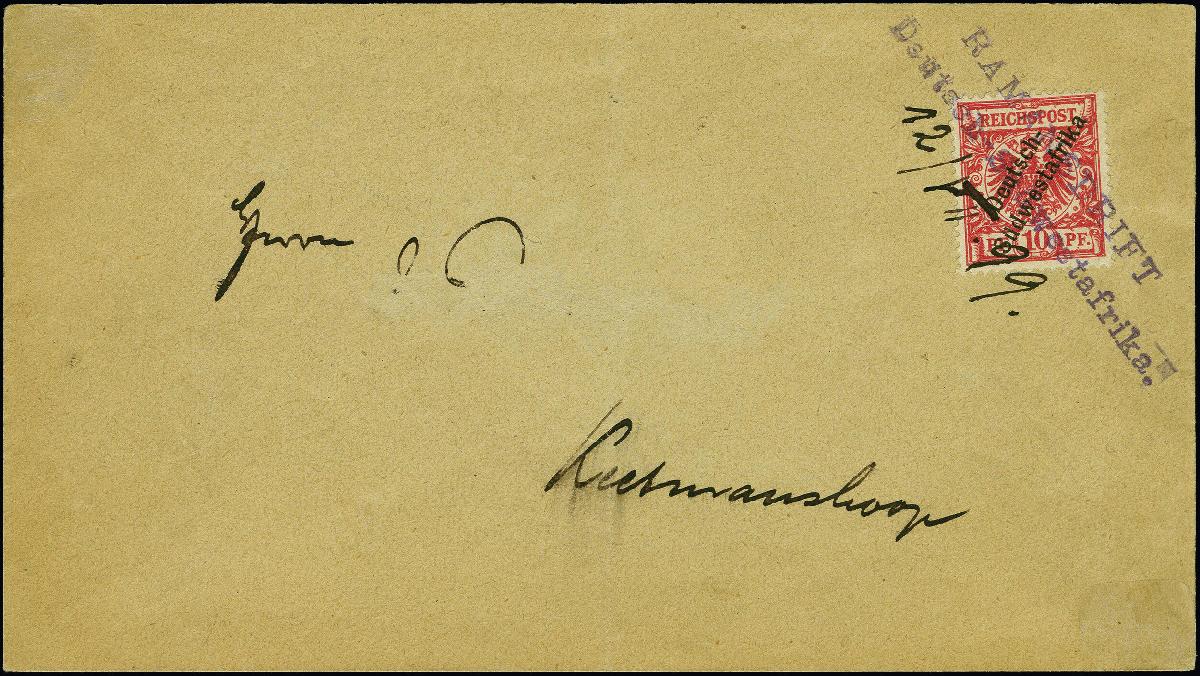 RAM DRIFT
Deutsch-Südwestafrika.
REICHSPOST
Deutsch-
Südwestafrika
PF. 10 PF.
12/
99.
Herrn
Keetmanshoop